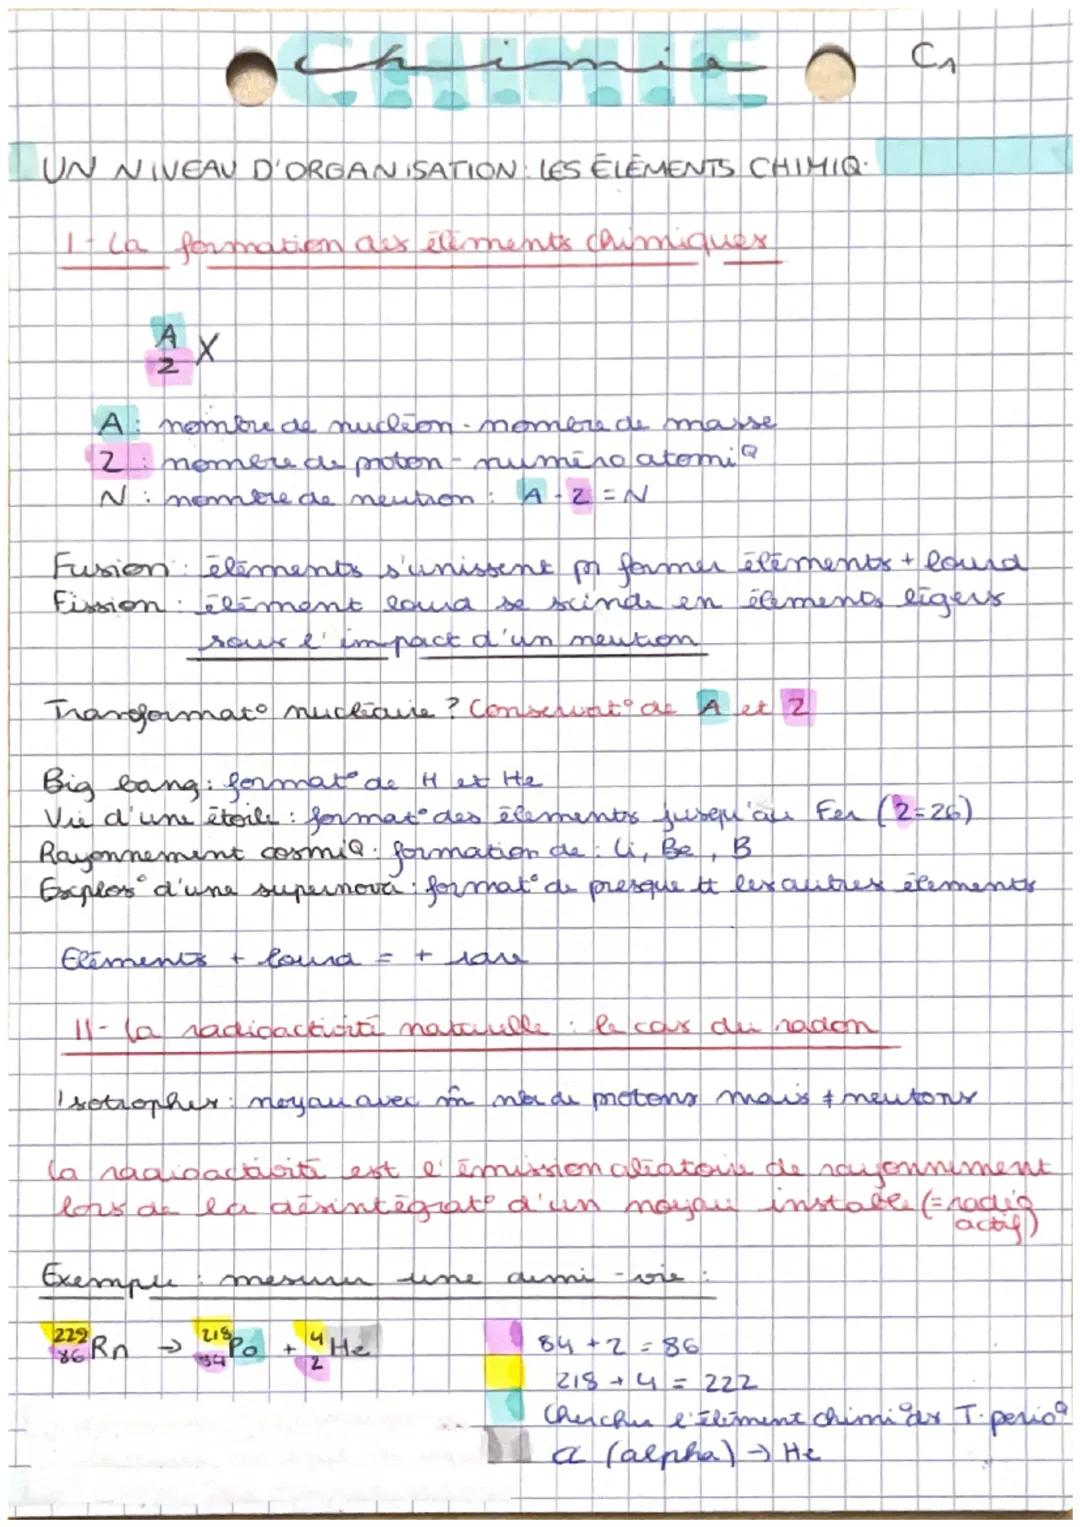 Chimie
CHIMIE
C1
UN NIVEAU D'ORGANISATION : LES ÉLÉMENTS CHIMIQ.
I - La formation des éléments chimiques
A
Z X
A : nombre de nucléon - nombre de masse
Z : nombre de proton - numéro atomiQ
N : nombre de neutron : A - Z = N
Fusion : éléments s'unissent pr former éléments + lourd
Fission : élément lourd se scinde en éléments légers
sous l'impact d'un neutron
Transformat° nucléaire ? Conservat° de A et Z
Big bang : format° de H et He
Vie d'une étoile : format° des éléments jusqu'au Fer (Z=26)
Rayonnement cosmiQ : formation de : Li, Be, B
Explos° d'une supernova : format° de presque tt les autres éléments
Eléments + lourd = + rare
II - La radioactivité naturelle : le cas du radon
Isotrophes : noyau avec m̂ nb de protons mais ≠ neutons
La radioactivité est l'émission aléatoire de rayonnement
lors de la désintégrat° d'un noyau instable (= radio
actif)
Exemple : mesurer une demi-vie :
222 86 Rn → 218 84 Po + 4 2 He
84 + 2 = 86
218 + 4 = 222
Chercher l'élément chimiQ ds T. périoQ
α (alpha) → He